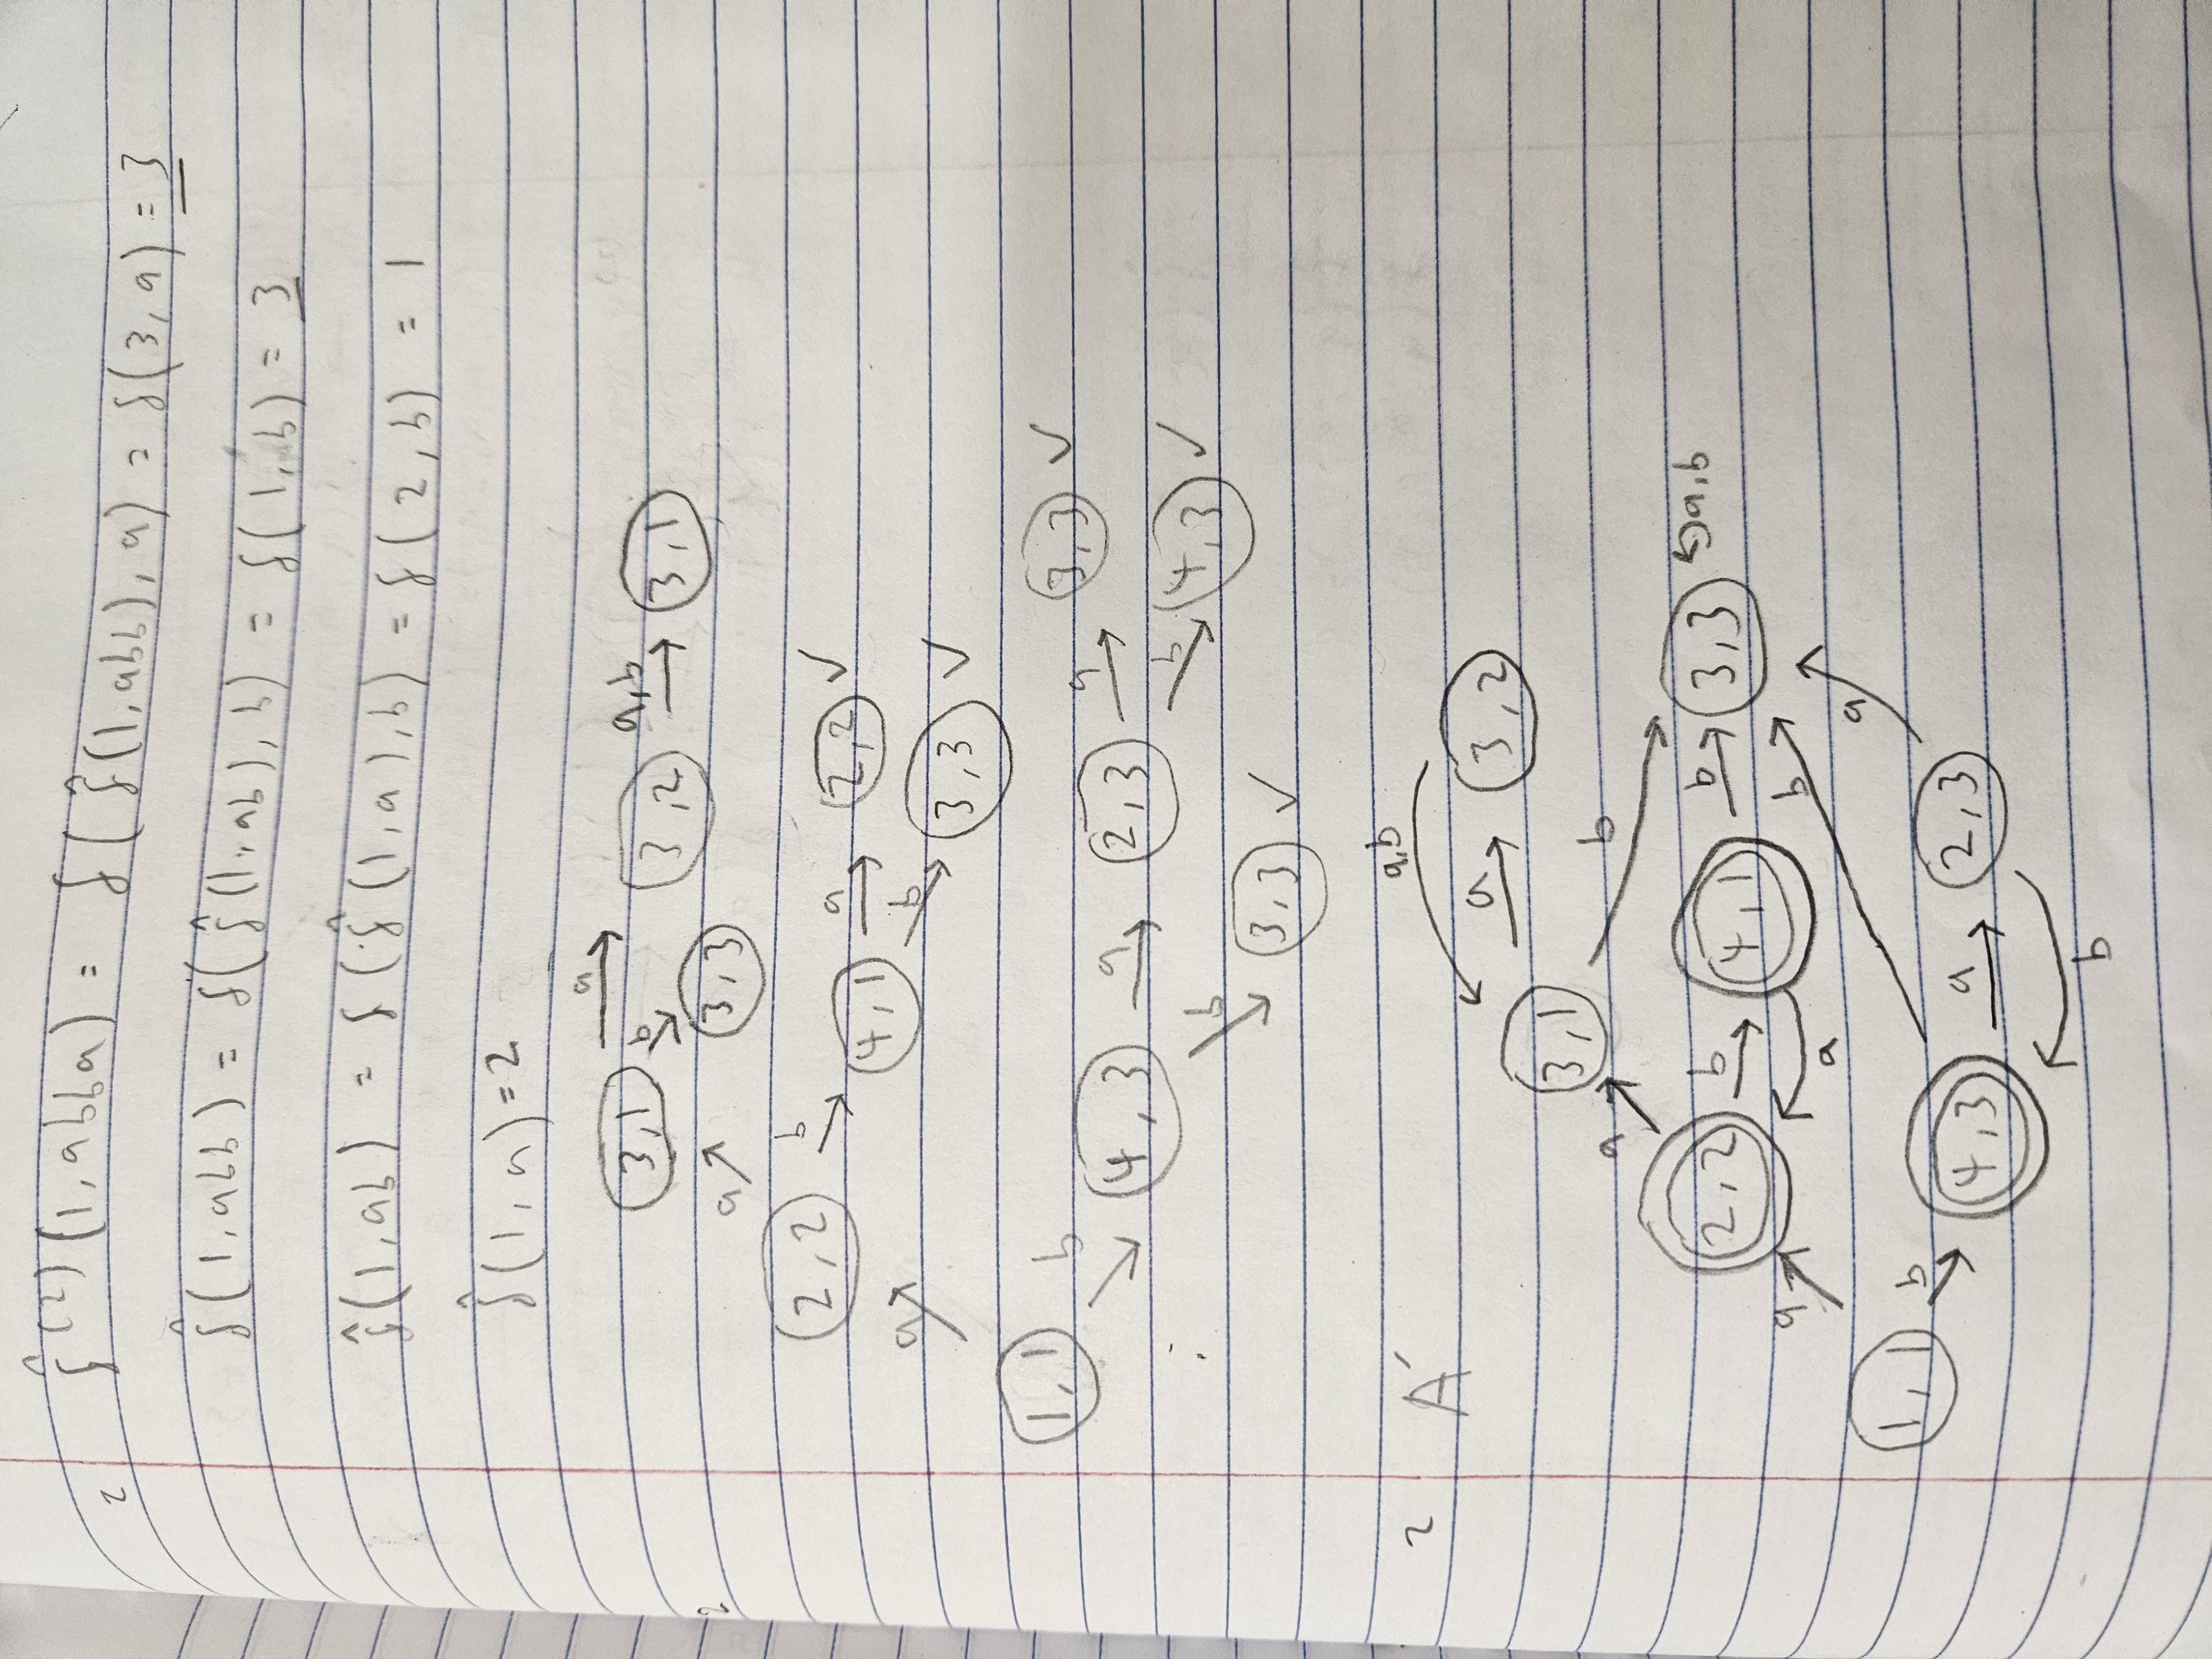 2 δ̂⁽²⁾(1,abba) = δ(δ̂(1,abb),a) = δ(3,a) = 3
δ̂(1,abb) = δ(δ̂(1,ab),b) = δ(1,b) = 3
δ̂(1,ab) = δ(δ̂(1,a),b) = δ(2,b) = 1
δ̂(1,a)=2
a
3,1 b 3,2 a,b 3,1
2 a 3,3
2,2 b
4,1 a 2,2 ✓
a b
3,3 ✓
1,1 b 3,3 ✓
4,3 a 2,3 a
b 4,3 ✓
b
3,3 ✓
a,b
2 A´
a 3,2
3,1
a b
2,2 b 4,1 b 3,3 a,b
a a b
a
1,1 b
4,3 a 2,3
b